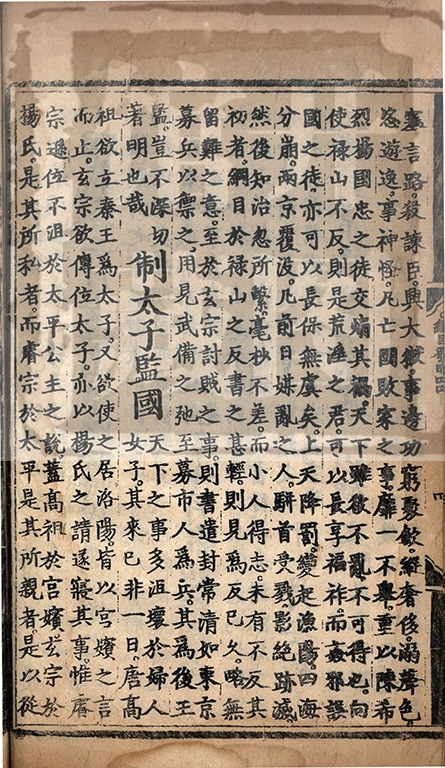 塞言路殺諫臣。興大獄。事邊功。窮聚斂。縱奢侈。溺聲色。
恣遊逸。事神怪。凡亡國敗家之事。靡一不舉。重以陳希
烈揚國忠之徒。交煽其禍。天下雖後不亂。不可得也。向
使禄山不反。則是荒滛之君。可以長享福祚。而姦邪誤
國之徒。亦可以長保無虞矣。上天降罰。變起漁陽。四海
分崩。兩京覆沒。凡前日媒亂之人。騈首受戮。影絶跡滅。
然後知治忽所繫。毫杪不差。而小人得志。未有不反其
初者。綱目於禄山之反。書之甚輕。則見爲反已久。略無
留難之意。至於玄宗討賊之事。則書遣封常清如東京
募兵以禦之。用見武備之弛。至募市人爲兵。其爲後王
監。豈不深切
著明也哉
制太子監國
天下之事多沮壞於婦人
女子。其來已非一日。唐高
祖欲立秦王爲太子。又欲使之居洛陽。皆以宮嬪之言
而止。玄宗欲傳位太子。亦以楊氏之請。遂寢其事。惟睿
宗遜位。不沮於太平公主之說。蓋高祖於宮嬪。玄宗於
楊氏。是其所私者。而睿宗於太平。是其所親者。是以從